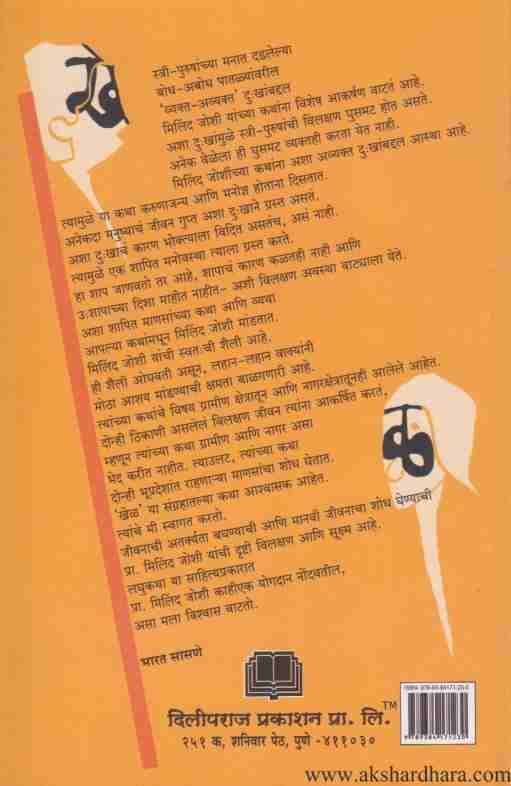 स्त्री-पुरुषांच्या मनात दडलेल्या
बोध-अबोध पातळ्यांवरील
'व्यक्त-अव्यक्त' दुःखांबद्दल
मिलिंद जोशी यांच्या कथांना विशेष आकर्षण वाटतं आहे.
अशा दुःखांमुळे स्त्री-पुरुषांची विलक्षण घुसमट होत असते.
अनेक वेळेला ही घुसमट व्यक्तही करता येत नाही.
मिलिंद जोशींच्या कथांना अशा अव्यक्त दुःखांबद्दल आस्था आहे.
त्यामुळे या कथा करुणाजन्य आणि मनोज्ञ होताना दिसतात.
अनेकदा मनुष्याचं जीवन गुप्त अशा दुःखाने ग्रस्त असतं.
अशा दुःखाचं कारण भोक्त्याला विदित असतंच, असं नाही.
त्यामुळे एक शापित मनोवस्था त्याला ग्रस्त करते.
हा शाप जाणवतो तर आहे, शापाचे कारण कळतही नाही आणि
उःशापाच्या दिशा माहीत नाहीत- अशी विलक्षण अवस्था वाट्याला येते.
अशा शापित माणसांच्या कथा आणि व्यथा
आपल्या कथांमधून मिलिंद जोशी मांडतात.
मिलिंद जोशी यांची स्वतःची शैली आहे.
ही शैली ओघवती असून, लहान-लहान वाक्यांनी
मोठा आशय मांडण्याची क्षमता बाळगणारी आहे.
त्यांच्या कथांचे विषय ग्रामीण क्षेत्रातून आणि नागरक्षेत्रातूनही आलेले आहेत.
दोन्ही ठिकाणी असलेलं विलक्षण जीवन त्यांना आकर्षित करतं,
म्हणून त्यांच्या कथा ग्रामीण आणि नागर असा
भेद करीत नाहीत. त्याउलट, त्यांच्या कथा
दोन्ही भूप्रदेशांत राहणाऱ्या माणसांचा शोध घेतात.
'खेळ' या संग्रहातल्या कथा आश्वासक आहेत.
त्यांचे मी स्वागत करतो.
जीवनाची अतर्क्यता बघण्याची आणि मानवी जीवनाचा शोध घेण्याची
प्रा. मिलिंद जोशी यांची दृष्टी विलक्षण आणि सूक्ष्म आहे.
लघुकथा या साहित्यप्रकारात
प्रा. मिलिंद जोशी काहीएक योगदान नोंदवतील,
असा मला विश्वास वाटतो.
भारत सासणे
दिलीपराज प्रकाशन प्रा. लि.™
२५१ क, शनिवार पेठ, पुणे -४११०३०
www.akshardhara.com